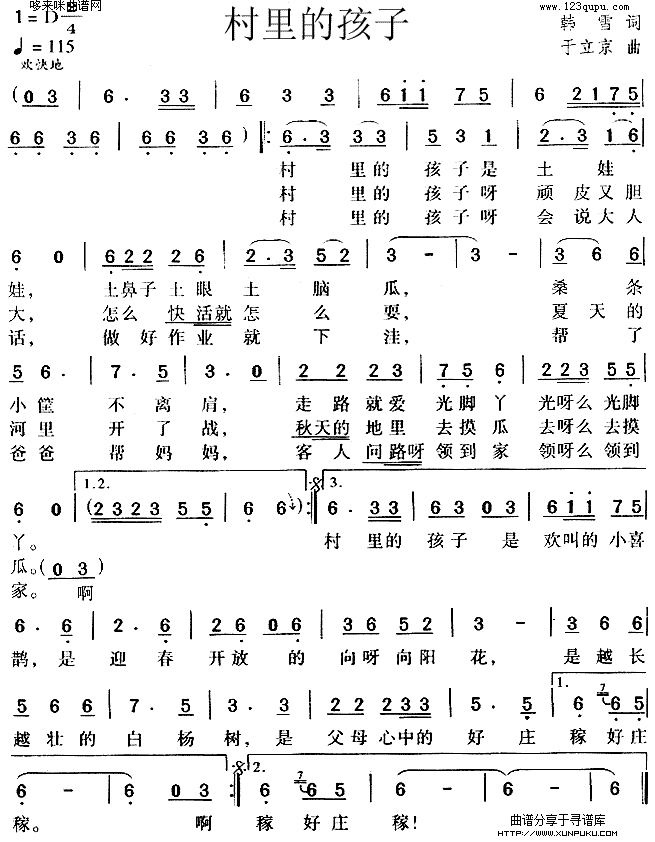 哆来咪曲谱网
www.123qupu.com
1=D 2/4
♩=115
欢快地
村里的孩子
韩雪 词
于立京 曲
(0 3 | 6. 3 3 | 6 3 3 | 6 1 1 7 5 | 6 2 1 7 5 |
6 6 3 6 | 6 6 3 6) ‖: 6. 3 3 3 | 5 3 1 | 2. 3 1 6 |
村 里的 孩子是 土 娃
村 里的 孩子呀 顽皮又胆
村 里的 孩子呀 会说大人
6 0 | 6 2 2 2 6 | 2. 3 5 2 | 3 - | 3 - | 3 6 6 |
娃, 土鼻子土眼土 脑 瓜, 桑 条
大, 怎么快活就怎 么 耍, 夏天的
话, 做好作业就 下 洼, 帮 了
5 6. | 7. 5 | 3. 0 | 2 2 2 3 | 7 5 6 | 2 2 3 5 5 |
小筐 不离肩, 走路就爱 光脚丫 光呀么光脚
河里 开了战, 秋天的地里 去摸瓜 去呀么去摸
爸爸 帮妈妈, 客人问路呀 领到家 领呀么领到
1.2. 3.
6 0 | (2 3 2 3 5 5 | 6 6) :‖ 6. 3 3 | 6 3 0 3 | 6 1 1 7 5 |
丫。 村 里的 孩子 是 欢叫的小喜
瓜。(0 3)
家。 啊
6. 6 | 2. 6 | 2 6 0 6 | 3 6 5 2 | 3 - | 3 6 6 |
鹊,是 迎 春 开放 的 向呀向阳 花, 是越长
5 6 6 | 7. 5 | 3. 3 | 2 2 2 3 3 | 5. 5 | 6 7 6 5 |
越壮的 白杨树,是 父母心中的 好 庄 稼好庄
1.
2.
6 - | 6 - | 6 0 3 :‖ 6 7 6 5 | 6 - | 6 - | 6 - ‖
稼。 啊 稼 好庄 稼!
曲谱分享于寻谱库
HTTP://WWW.XUNPUKU.COM